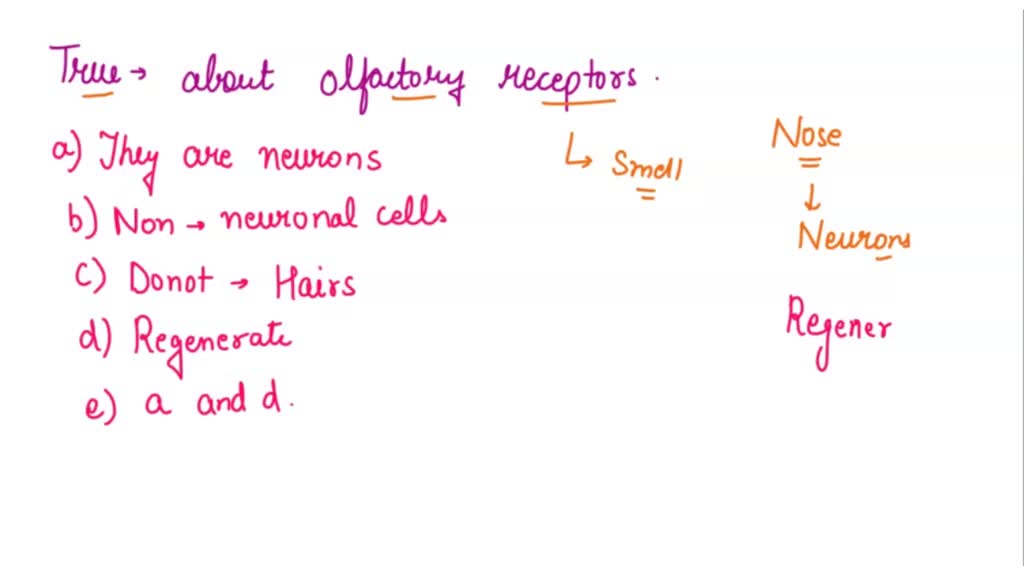 True → about olfactory receptors.
a) They are neurons
b) Non → neuronal cells
c) Donot → Hairs
d) Regenerate
e) a and d.
↳ Smell
Nose
↓
Neurons
Regener